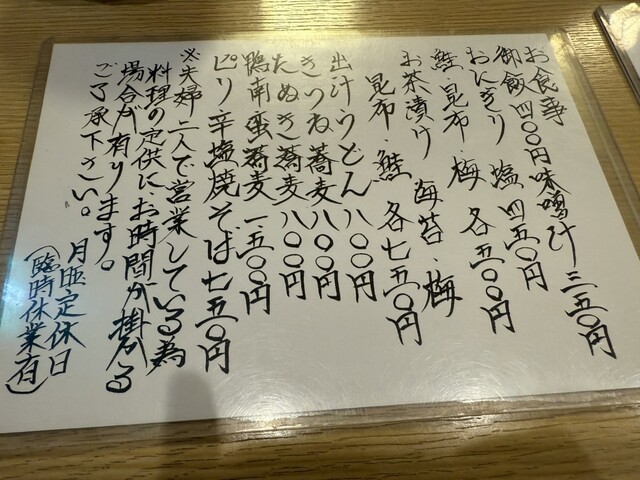 お食事
御飯 四〇〇円 味噌汁 三五〇円
おにぎり 塩 四五〇円
鮭・昆布・梅 各五〇〇円
お茶漬け 海苔・梅
昆布 鮭 各七五〇円
出汁うどん 八〇〇円
きつね蕎麦 八〇〇円
たぬき蕎麦 八〇〇円
鴨南蛮蕎麦 一、五〇〇円
ピリ辛塩焼そば 七五〇円
※夫婦二人で営業している為
料理の定供に、お時間が掛かる
場合が有ります。
ご了承下さい。
月曜定休日
(臨時休業有)